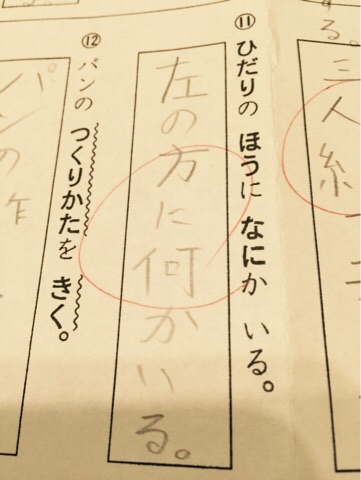 る。
三人糸
⑪ ひだりの ほうに なにか いる。
左の方に何かいる。
⑫ パンの つくりかたを きく。
パンの作